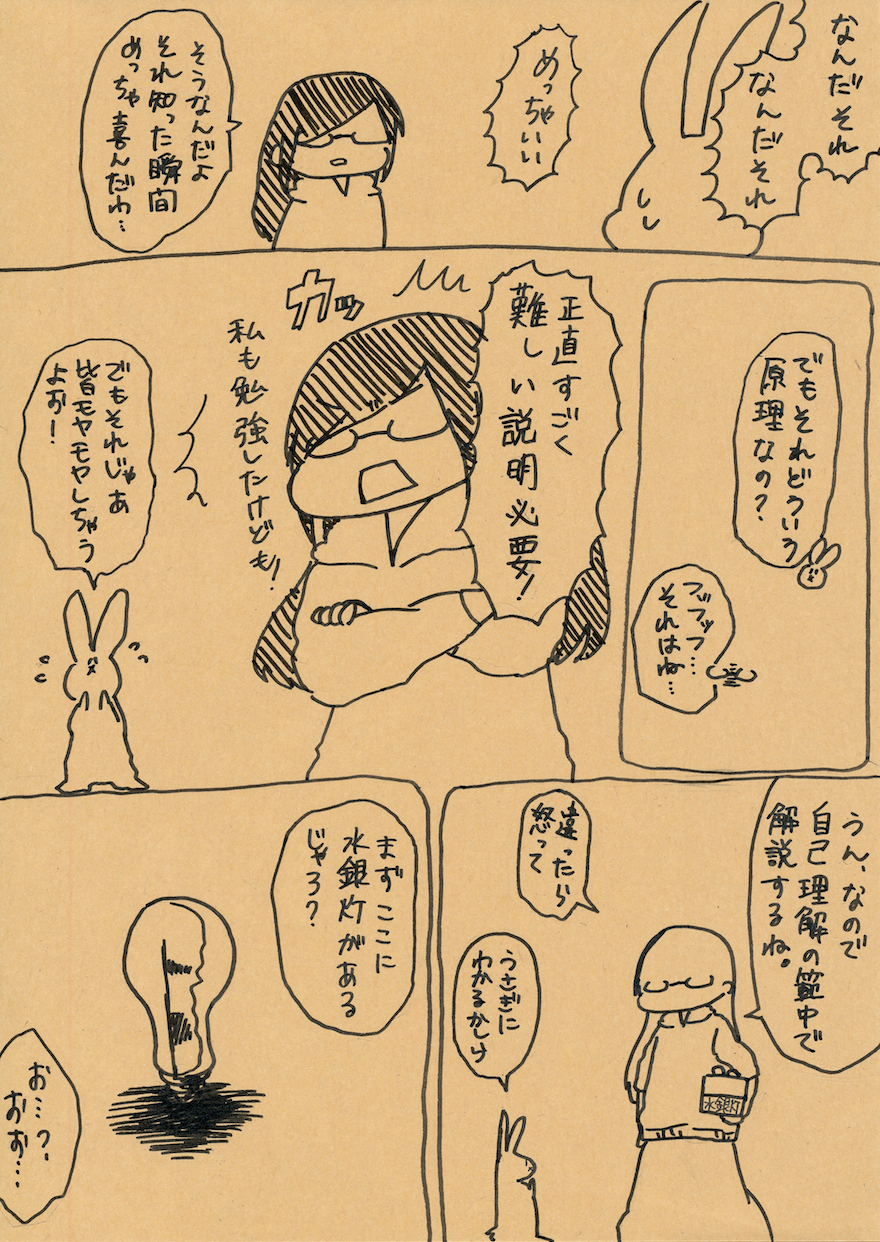 なんだそれ
なんだそれ
めっちゃいい
そうなんだよ
それ知った瞬間
めっちゃ喜んだわ…
でもそれどういう
原理なの？
フッフッフ…
それはね…
正直すごく
難しい説明必要！
カッ
私も勉強したけども！
でもそれじゃあ
皆モヤモヤしちゃう
よお！
うん、なので
自己理解の範中で
解説するね。
違ったら
怒って
水銀灯
うさぎに
わかるかしけ
まずここに
水銀灯がある
じゃろ？
お…？
おお…